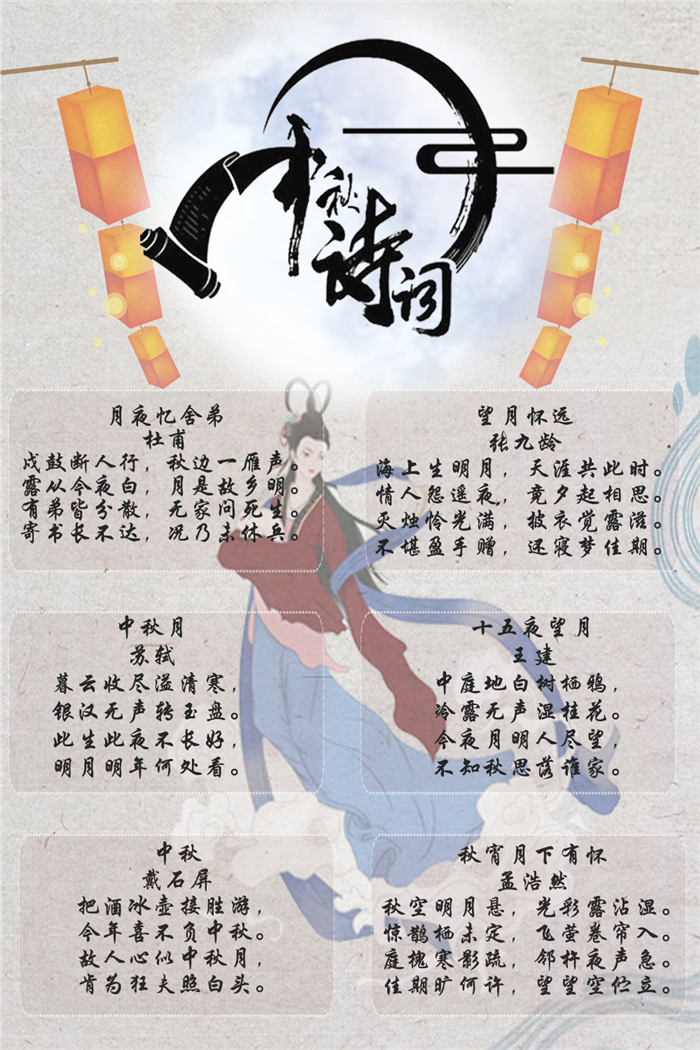 中秋诗词
月夜忆舍弟
杜甫
戍鼓断人行，秋边一雁声。
露从今夜白，月是故乡明。
有弟皆分散，无家问死生。
寄书长不达，况乃未休兵。
望月怀远
张九龄
海上生明月，天涯共此时。
情人怨遥夜，竟夕起相思。
灭烛怜光满，披衣觉露滋。
不堪盈手赠，还寝梦佳期。
中秋月
苏轼
暮云收尽溢清寒，
银汉无声转玉盘。
此生此夜不长好，
明月明年何处看。
十五夜望月
王建
中庭地白树栖鸦，
冷露无声湿桂花。
今夜月明人尽望，
不知秋思落谁家。
中秋
戴石屏
把酒冰壶接胜游，
今年喜不负中秋。
故人心似中秋月，
肯为狂夫照白头。
秋宵月下有怀
孟浩然
秋空明月悬，光彩露沾湿。
惊鹊栖未定，飞萤卷帘入。
庭槐寒影疏，邻杵夜声急。
佳期旷何许，望望空伫立。